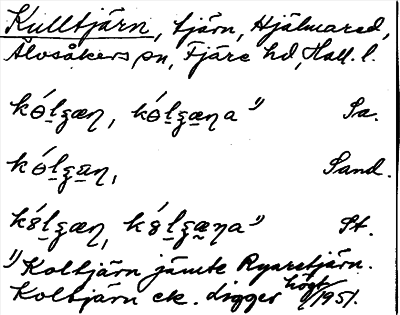 Kulltjärn, tjärn, Hjälmared,
Älvsåkers sn, Fjäre hd, Hall. l.
kɵ́lʒæn, kɵ́lʒæna ¹⁾ Sa.
kɵ́lʒan, Sand.
kɤ́lʒæn, kɤ́lʒæna ¹⁾ St.
¹⁾ Koltjärn jämte Ryarstjärn.
Koltjärn ek. ligger högt /1951.